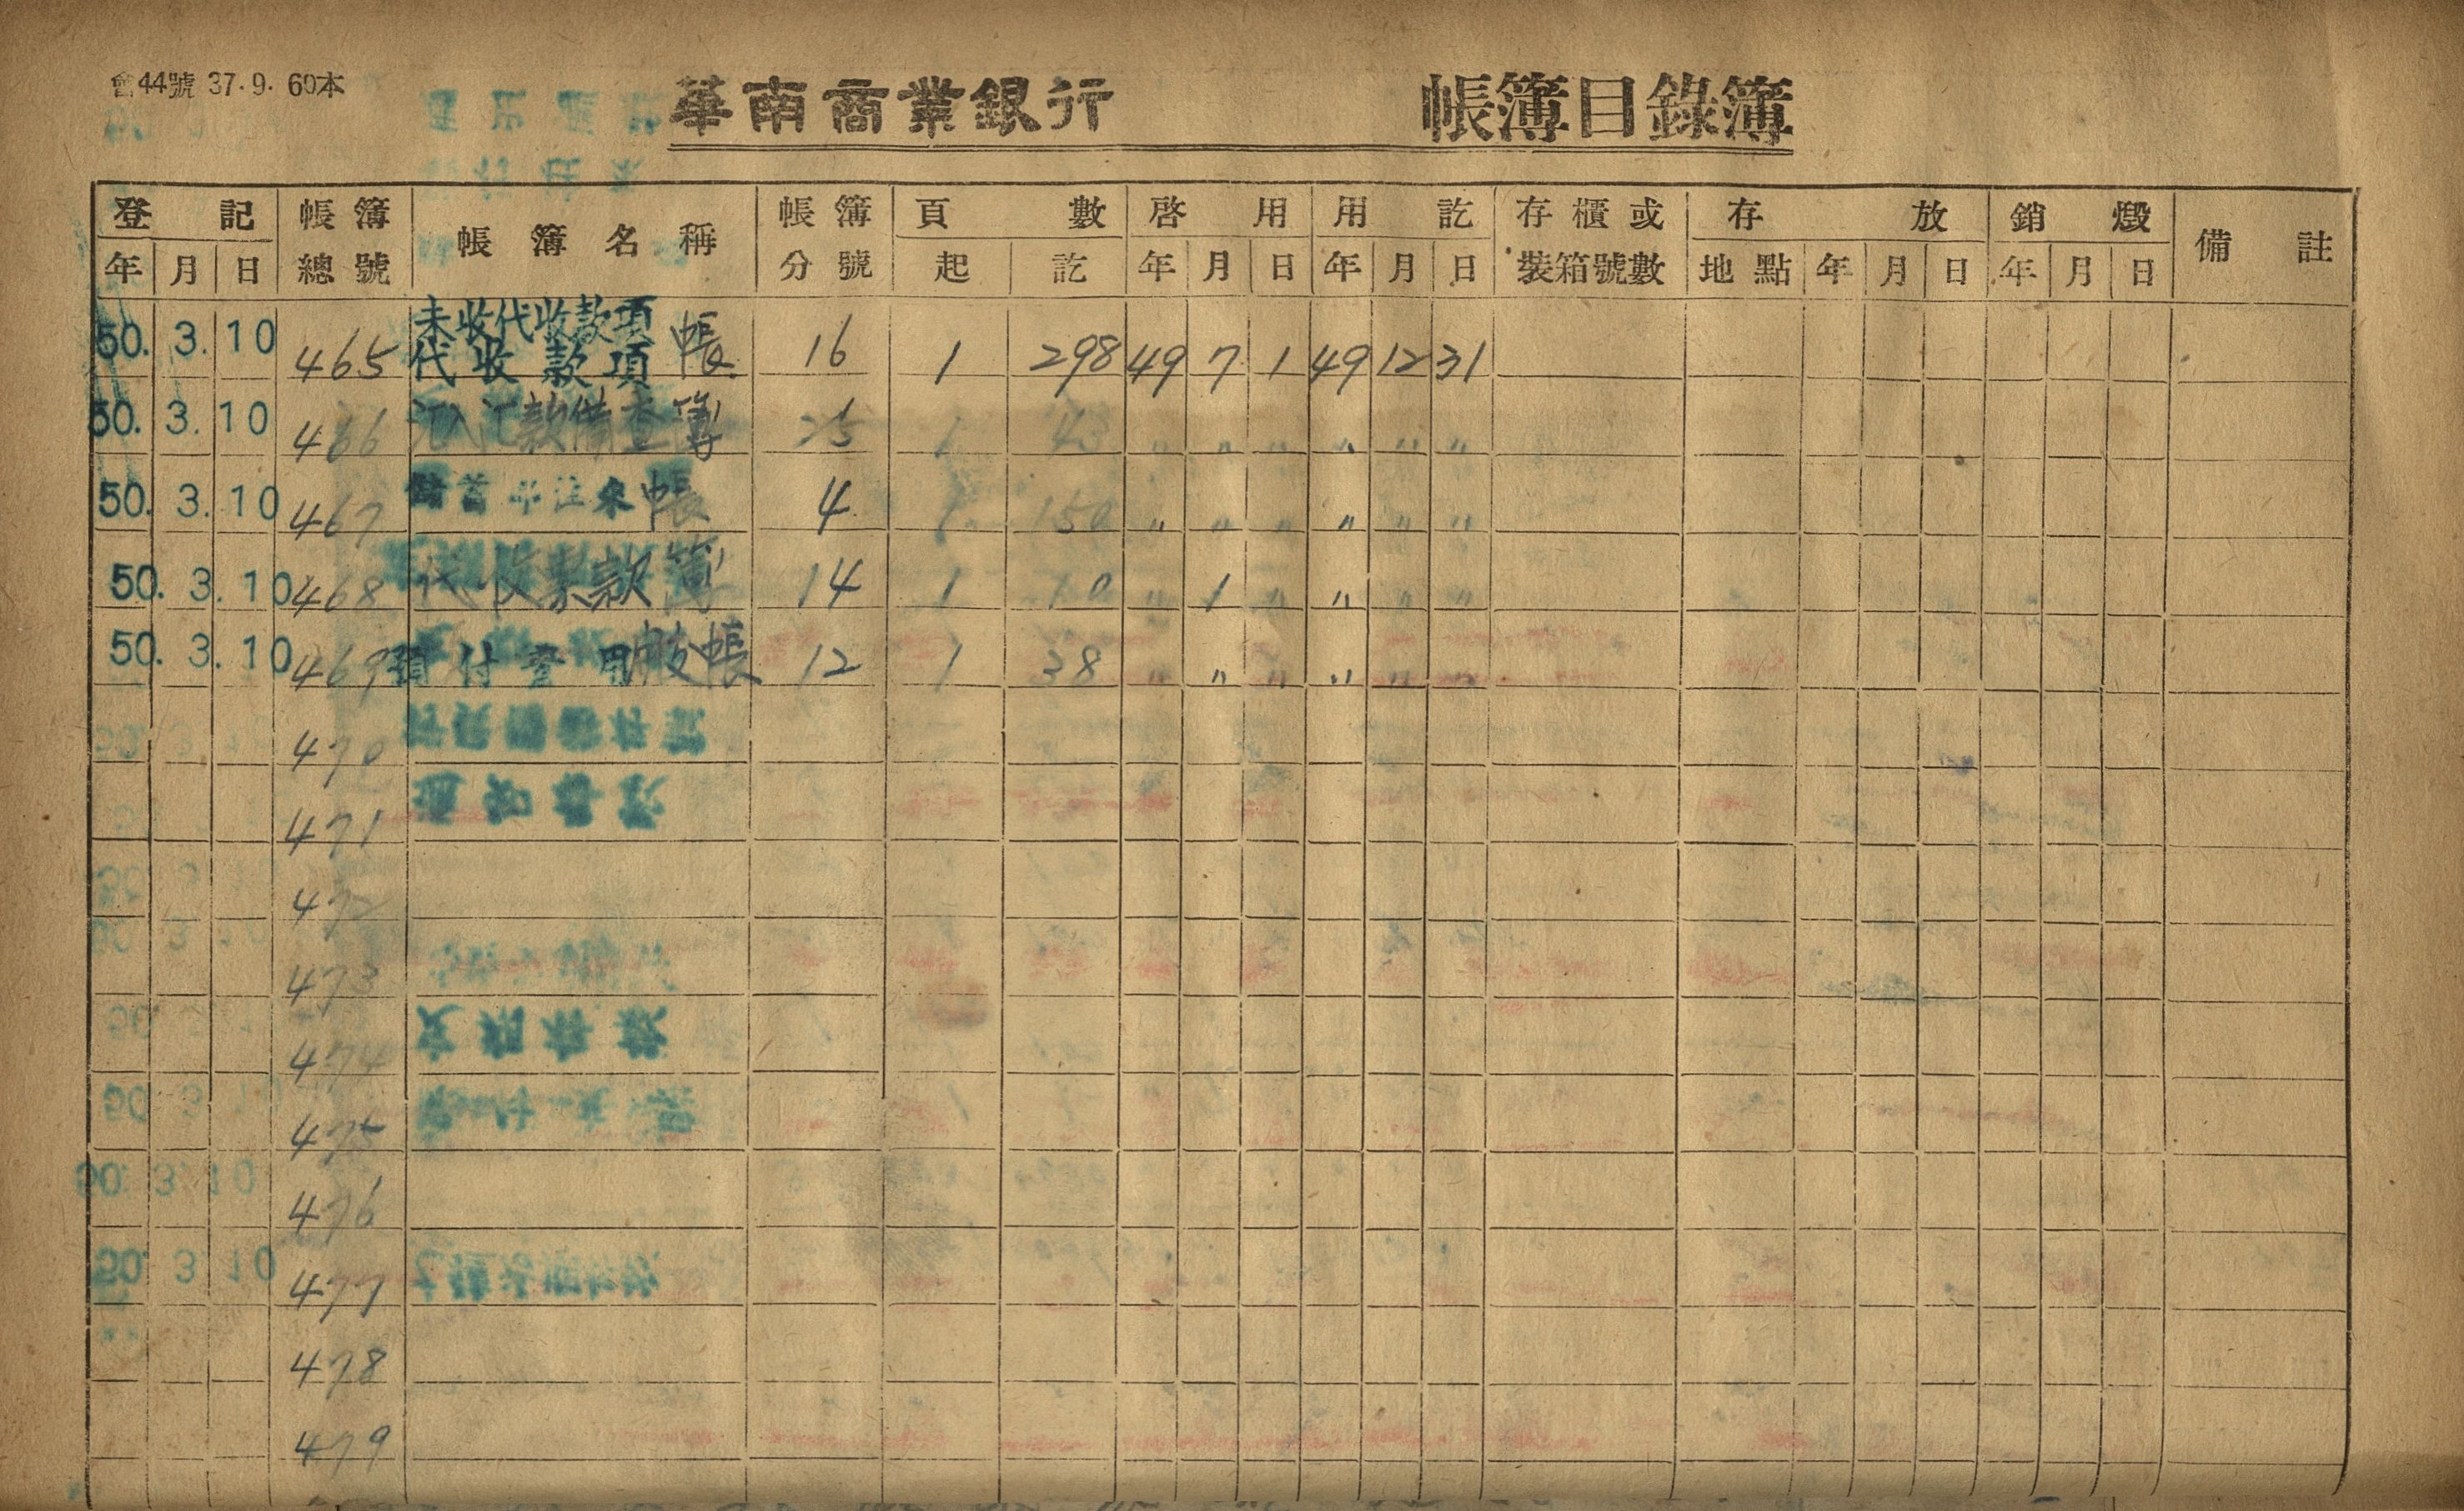 會44號 37.9. 60本
華南商業銀行 帳簿目錄簿
登記 帳簿 帳簿名稱 帳簿 頁數 啓用 用訖 存櫃或 存放 銷燬 備註
年 月 日 總號 分號 起 訖 年 月 日 年 月 日 裝箱號數 地點 年 月 日 年 月 日
未收代收款項
50. 3. 10 465 代收款項帳 16 1 298 49 7 1 49 12 31
50. 3. 10 466 汇入汇款備查簿 25 1 43 〃 〃 〃 〃 〃 〃
50. 3. 10 467 帳 4 1 150 〃 〃 〃 〃 〃 〃
50. 3. 10 468 代收票款簿 14 1 10 〃 1 〃 〃 〃 〃
50. 3. 10 469 預付費用帳 12 1 38 〃 〃 〃 〃 〃 〃
470
471
472
473
474
475
476
477
478
479